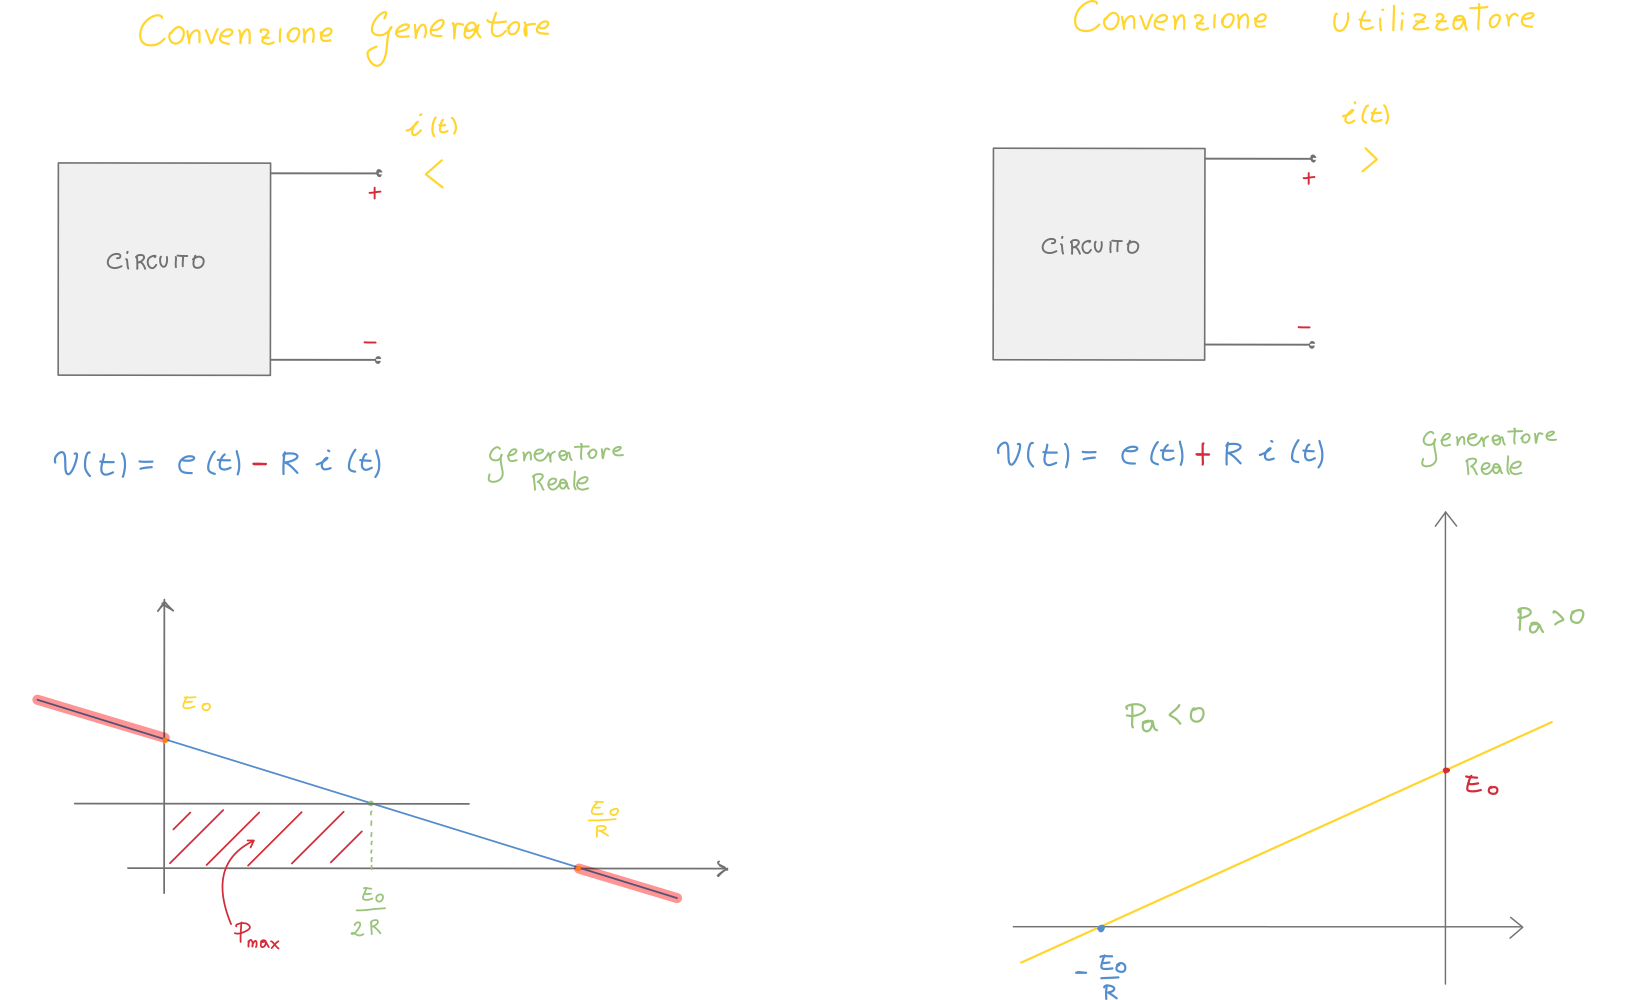 Convenzione Generatore
i(t)
<
+
CIRCUITO
-
v(t) = e(t) - R i(t)
Generatore
Reale
E0
E0
R
E0
2R
Pmax
Convenzione utilizzatore
i(t)
>
+
CIRCUITO
-
v(t) = e(t) + R i(t)
Generatore
Reale
Pa > 0
Pa < 0
E0
- E0
R